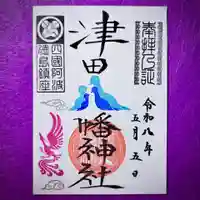 令和八年
五月五日
津田
幡神社
四國阿波
徳島鎮座